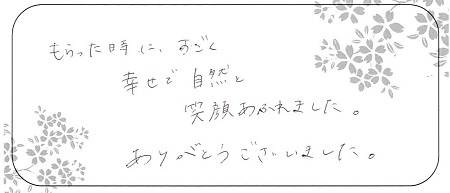 もらった時に、すごく
幸せで自然と
笑顔あふれました。
ありがとうございました。